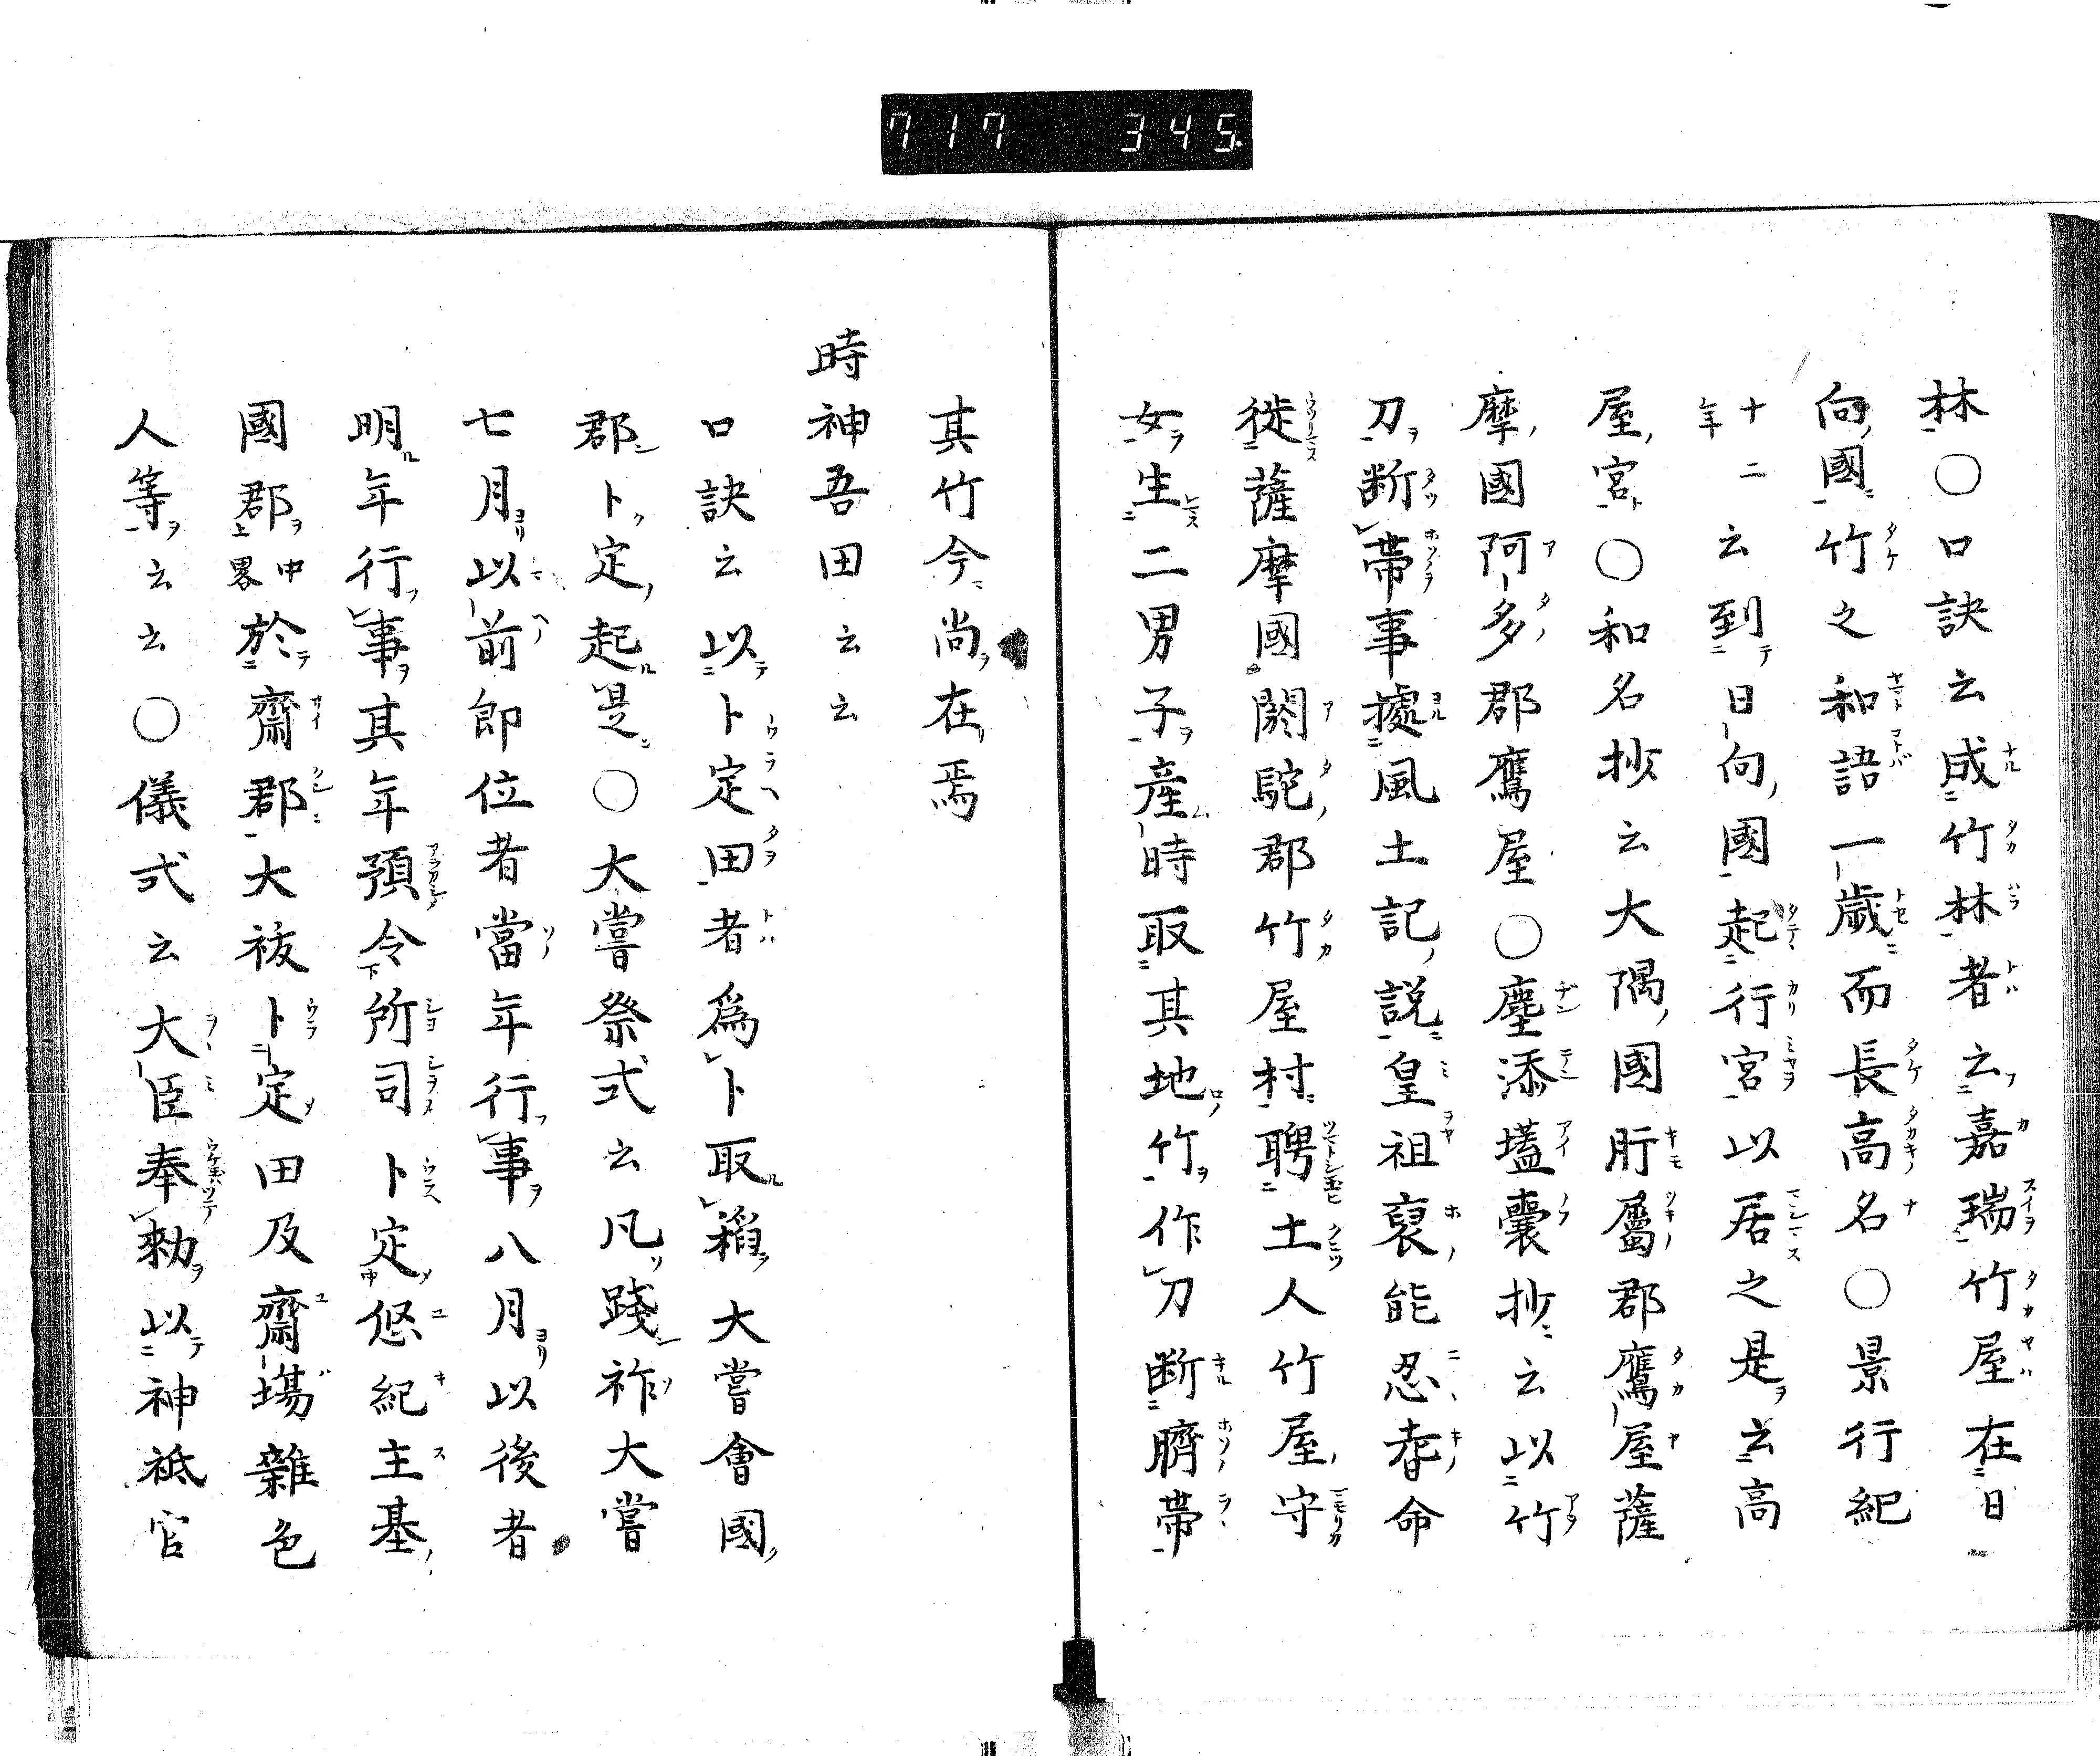 717 345
林○口訣云成竹林者云嘉瑞竹屋在日
向國竹之和語一歳而長高名○景行紀
十二年云到日向國起行宮以居之是云高
屋宮○和名抄云大隅國肝屬郡鷹屋薩
摩國阿多郡鷹屋○塵添壒囊抄云以竹
刀断帯事據風土記説皇祖裒能忍耆命
徙薩摩國閼駝郡竹屋村聘土人竹屋守
女生二男子産時取其地竹作刀断臍帯
其竹今尚在焉
時神吾田云云
口訣云以卜定田者爲卜取稻大嘗會國
郡卜定起是○大嘗祭式云凡踐祚大嘗
七月以前即位者當年行事八月以後者
明年行事其年預令所司卜定悠紀主基
國郡中畧於齋郡大祓卜定田及齋場雜色
人等云云○儀式云大臣奉勅以神祗官